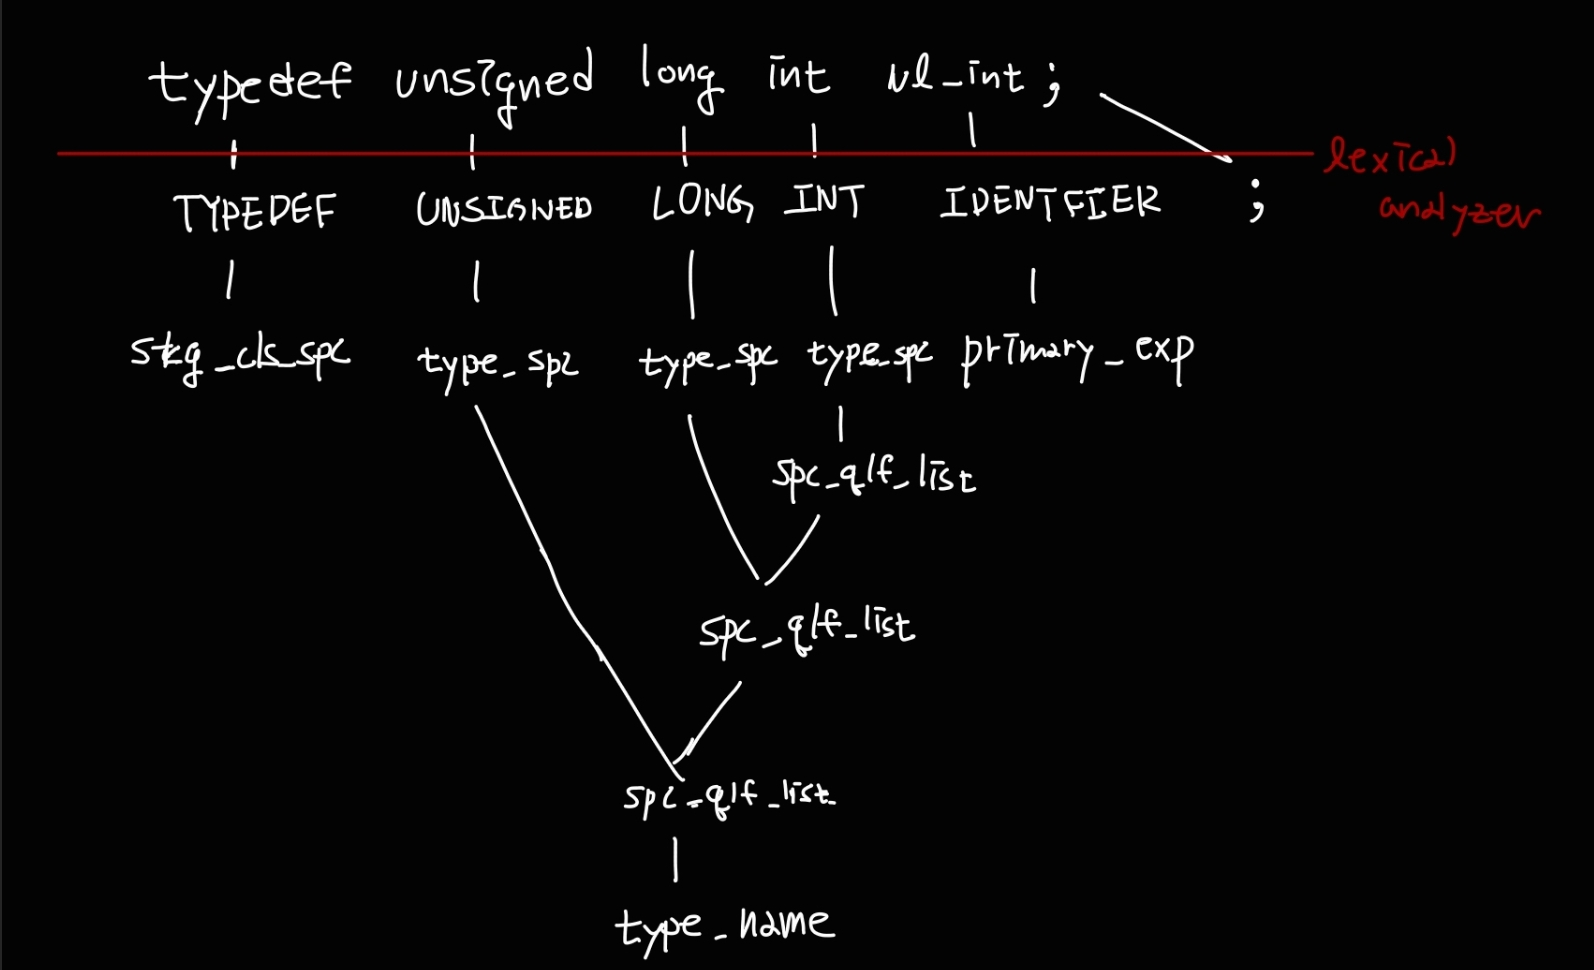 typedef unsigned long int ul_int ;
lexical
TYPEDEF UNSIGNED LONG INT IDENTIFIER ;
analyzer
stg_cls_spc type_spc type_spc type_spc primary_exp
spc_qlf_list
spc_qlf_list
spc_qlf_list
type_name